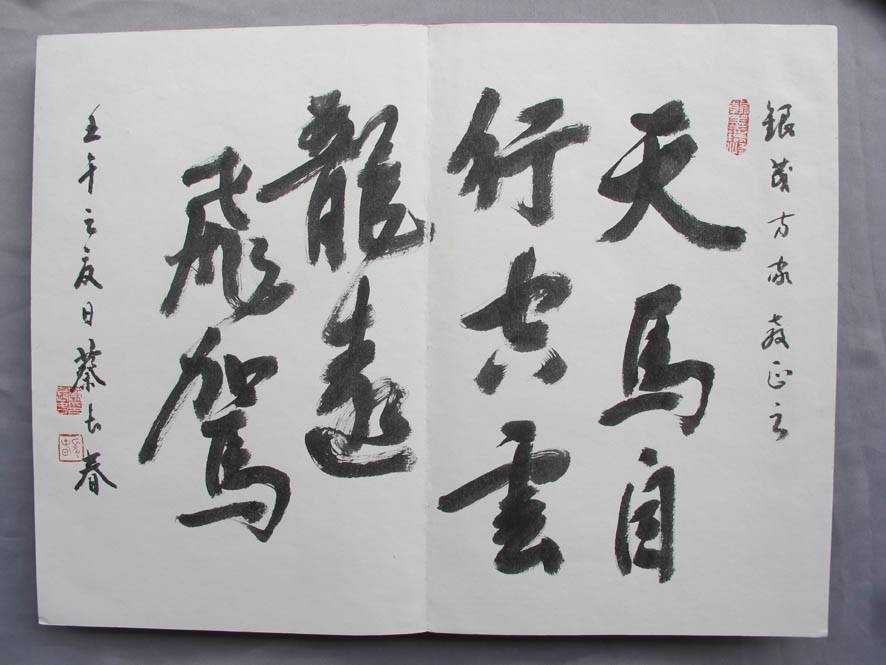 銀茂方家教正之
天馬自
行空雲
龍遠
飛駕
壬午之夏日蔡长春